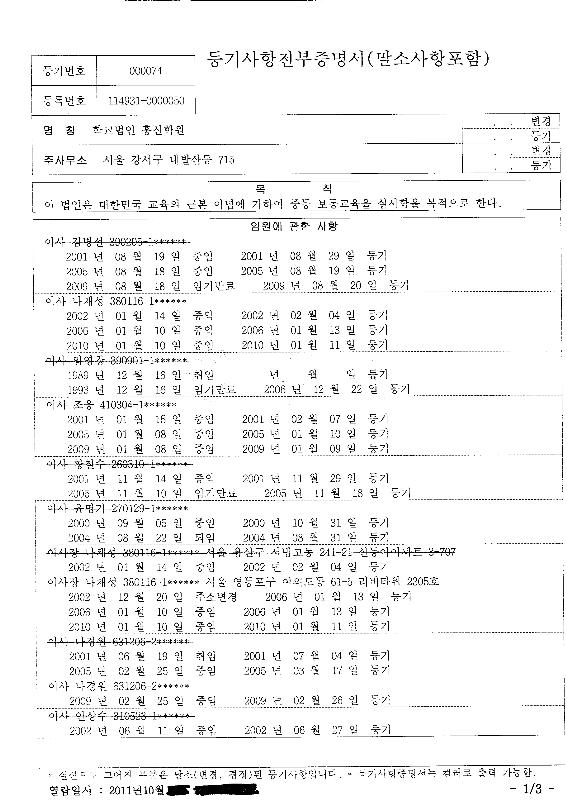 등기사항전부증명서(말소사항포함)
등기번호 000074
등록번호 114931-0000050
명 칭 학교법인 홍신학원
변경
등기
주사무소 서울 강서구 내발산동 715
변경
등기
목 적
이 법인은 대한민국 교육의 근본 이념에 기하여 중등 보통교육을 실시함을 목적으로 한다.
임원에 관한 사항
이사 300205-1******
2001 년 08 월 19 일 중임 2001 년 08 월 29 일 등기
2005 년 08 월 18 일 중임 2005 년 08 월 19 일 등기
2009 년 08 월 18 일 임기만료 2009 년 08 월 20 일 등기
이사 나채성 380116-1******
2002 년 01 월 14 일 중임 2002 년 02 월 04 일 등기
2006 년 01 월 10 일 중임 2006 년 01 월 13 일 등기
2010 년 01 월 10 일 중임 2010 년 01 월 11 일 등기
이사 390901-1******
1989 년 12 월 16 일 취임 년 월 일 등기
1993 년 12 월 16 일 임기만료 2006 년 12 월 22 일 등기
이사 조웅 410304-1******
2001 년 01 월 15 일 중임 2001 년 02 월 07 일 등기
2005 년 01 월 08 일 중임 2005 년 01 월 10 일 등기
2009 년 01 월 08 일 중임 2009 년 01 월 09 일 등기
이사 260310-1******
2001 년 11 월 14 일 중임 2001 년 11 월 29 일 등기
2005 년 11 월 10 일 임기만료 2005 년 11 월 18 일 등기
이사 270129-1******
2000 년 09 월 05 일 중임 2000 년 10 월 31 일 등기
2004 년 08 월 22 일 퇴임 2004 년 08 월 31 일 등기
이사장 나채성 380116-1****** 서울 용산구 서빙고동 241-21 신동아아파트 3-707
2002 년 01 월 14 일 중임 2002 년 02 월 04 일 등기
이사장 나채성 380116-1****** 서울 영등포구 여의도동 61-5 리버타워 2205호
2002 년 12 월 20 일 주소변경 2006 년 01 월 13 일 등기
2006 년 01 월 10 일 중임 2006 년 01 월 13 일 등기
2010 년 01 월 10 일 중임 2010 년 01 월 11 일 등기
이사 나경원 631206-2******
2001 년 06 월 19 일 취임 2001 년 07 월 04 일 등기
2005 년 02 월 25 일 중임 2005 년 03 월 17 일 등기
이사 나경원 631206-2******
2009 년 02 월 25 일 중임 2009 년 02 월 26 일 등기
이사 310523-1******
2002 년 06 월 11 일 중임 2002 년 06 월 27 일 등기
* 실선으로 그어진 부분은 말소(변경, 경정)된 등기사항입니다. * 등기사항증명서는 컬러로 출력 가능함.
열람일시 : 2011년10월
- 1/3 -